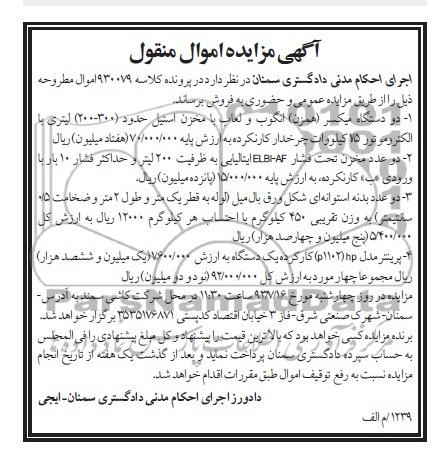 آگهی مزایده اموال منقول
اجرای احکام مدنی دادگستری سمنان در نظر دارد در پرونده کلاسه ۹۳۰۰۷۹ اموال مطروحه
ذیل را از طریق مزایده عمومی و حضوری به فروش برساند.
۱- دو دستگاه میکسر (همزن) انگوب و لعاب با مخزن استیل حدود (۳۰۰-۲۰۰) لیتری با
الکتروموتور ۱۵ کیلووات چرخدار کارکرده به ارزش پایه ۷۰/۰۰۰/۰۰۰ (هفتاد میلیون) ریال
۲- دو عدد مخزن تحت فشار ELBI-AF ایتالیایی به ظرفیت ۲۰۰ لیتر و حداکثر فشار ۱۰ بار با
کارکرده، به ارزش پایه ۱۵/۰۰۰/۰۰۰ (پانزده میلیون) ریال.
۳- دو عدد بدنه استوانه‌ای شکل ورق بال میل (لوله به قطر یک متر و طول ۲ متر و ضخامت ۰/۵
سانتیمتر) به وزن تقریبی ۴۵۰ کیلوگرم با احتساب هر کیلوگرم ۱۲۰۰۰ ریال به ارزش کل
۵/۴۰۰/۰۰۰ (پنج میلیون و چهارصد هزار) ریال
۴- پرینتر مدل hp (p۱۱۰۲) کارکرده یک دستگاه به ارزش ۱/۶۰۰/۰۰۰ (یک میلیون و ششصد هزار)
ریال مجموعا چهار مورد به ارزش کل ۹۲/۰۰۰/۰۰۰ (نود و دو میلیون) ریال
مزایده در روز چهارشنبه مورخ ۹۳/۷/۱۶ ساعت ۱۱:۳۰ در محل شرکت کاشی سمند به آدرس-
سمنان-شهرک صنعتی شرق-فاز ۳ خیابان اقتصاد کدپستی ۳۵۳۵۱۷۶۸۷۱ برگزار خواهد شد.
برنده مزایده کسی خواهد بود که بالاترین قیمت را پیشنهاد و کل مبلغ پیشنهادی را فی‌المجلس
به حساب سپرده دادگستری سمنان پرداخت نماید و بعد از گذشت یک هفته از تاریخ انجام
مزایده نسبت به رفع توقیف اموال طبق مقررات اقدام خواهد شد.
دادورز اجرای احکام مدنی دادگستری سمنان-ایجی
۱۲۳۹/م الف